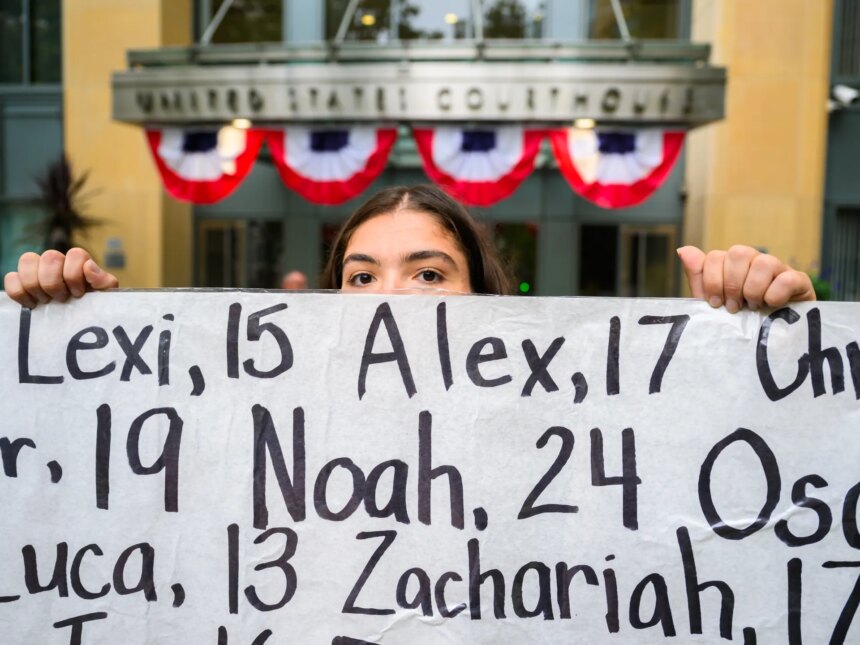 UNITED STATES COURTHOUSE
Lexi, 15 Alex, 17 Ch
r, 19 Noah, 24 Os
Luca, 13 Zachariah, 17